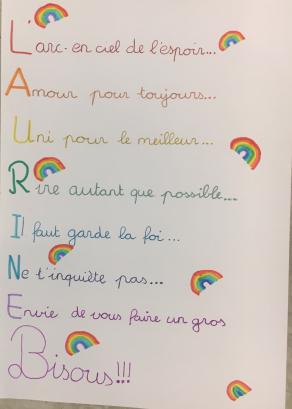 L'arc-en ciel de l'espoir...
Amour pour toujours...
Uni pour le meilleur...
Rire autant que possible....
Il faut garde la foi...
Ne t'inquiète pas...
Envie de vous faire un gros
Bisous!!!